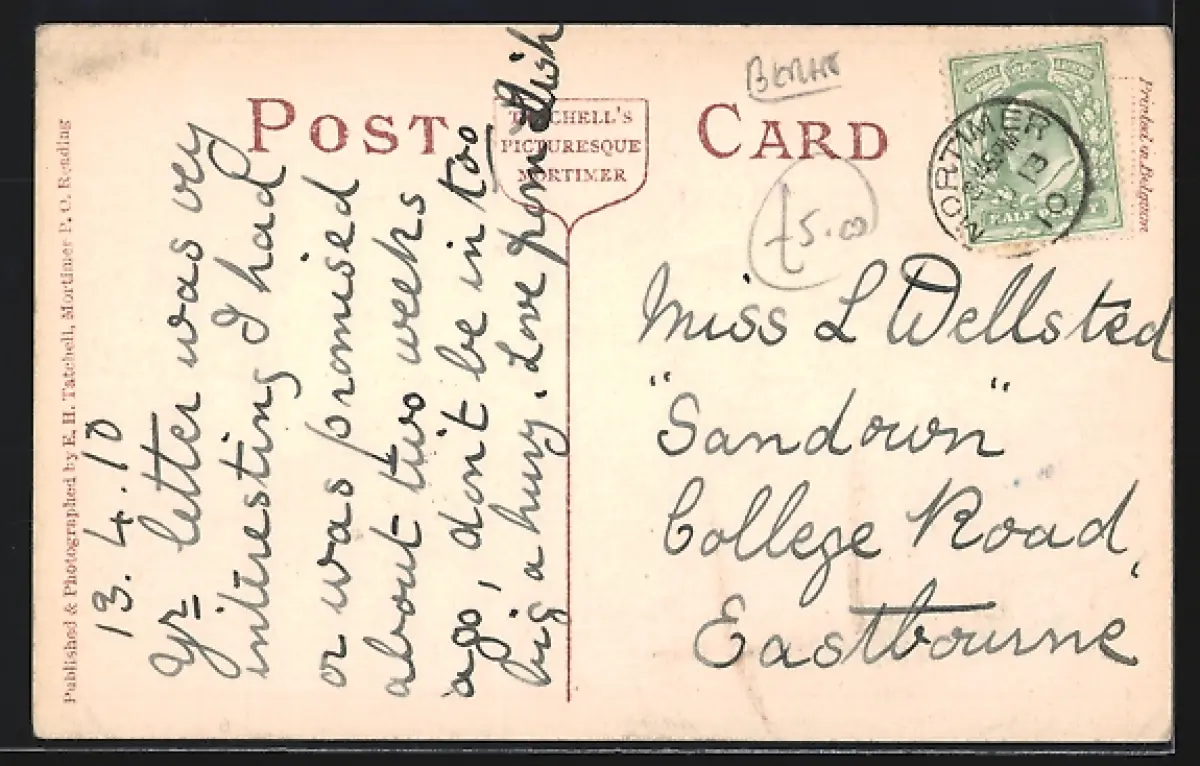 POST CARD
TATCHELL'S
PICTURESQUE
MORTIMER
Published & Photographed by E. H. Tatchell, Mortimer P. O. Reading
Printed in Belgium
BERKS
£5.00
MORTIMER
45PM
13
10
HALF
13. 4. 10
Yr letter was very
interesting I had
or was promised
about two weeks
ago, don't be in too
big a hurry. Love from
Miss L Wellsted
"Sandown"
College Road,
Eastbourne